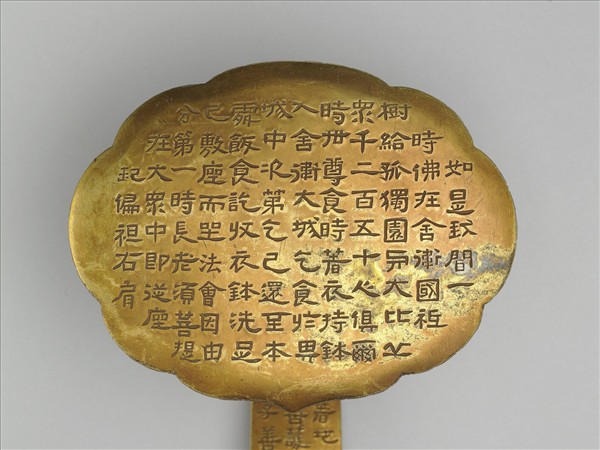 如是我聞一
時佛在舍衛國祇
樹給孤獨園与大比丘
眾千二百五十人俱爾
時世尊食時著衣持鉢
入舍衛大城乞食於其
城中次第乞已還至本
處飯食訖收衣鉢洗足
已敷座而坐法會因由
分第一時長老須菩提
在大眾中即從座
起偏袒右肩
著地
善